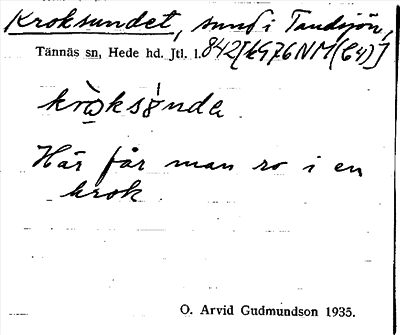 Kroksundet, sund i Tandsjön,
Tännäs sn, Hede hd. Jtl. l. 842[kG76NM(C4)]
krò̱ksúnda
Här får man ro i en
krok
O. Arvid Gudmundson 1935.